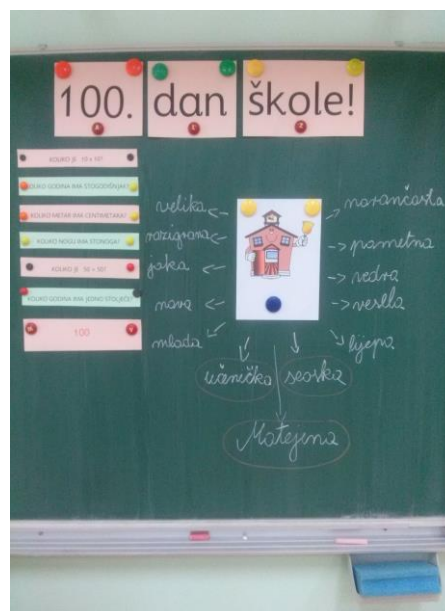 100. dan škole!
KOLIKO JE 10 x 10?
KOLIKO GODINA IMA STOGODIŠNJAK?
KOLIKO METAR IMA CENTIMETARA?
KOLIKO NOGU IMA STONOGA?
KOLIKO JE 50 + 50?
KOLIKO GODINA IMA JEDNO STOLJEĆE?
100
velika
razigrana
jaka
nova
mlada
narančasta
pametna
vedra
vesela
lijepa
učenička
seoska
Matejena